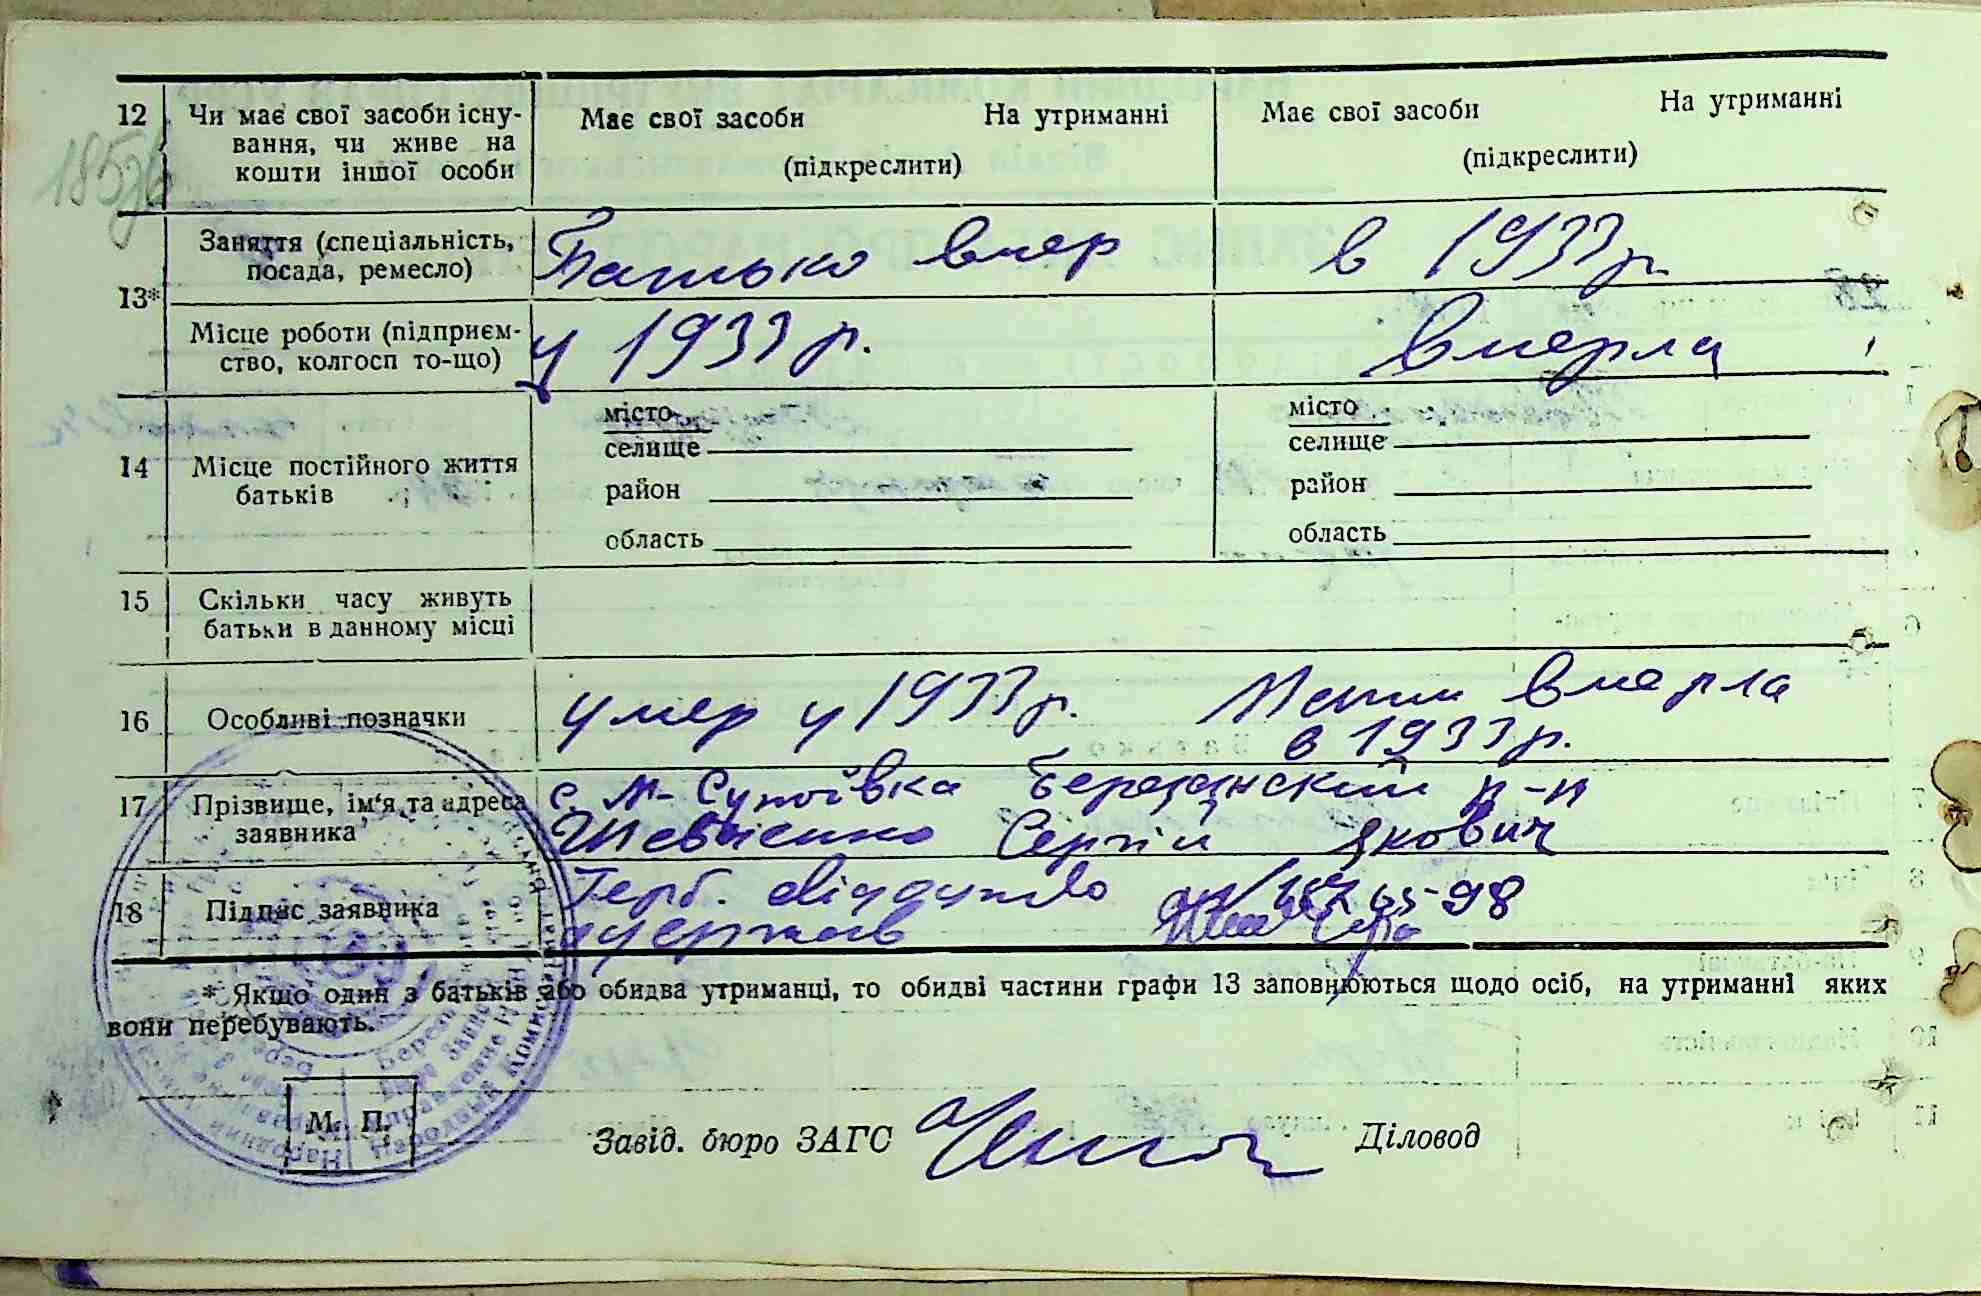 185зв
12 Чи має свої засоби існу-
вання, чи живе на
кошти іншої особи
Має свої засоби На утриманні
(підкреслити)
Має свої засоби На утриманні
(підкреслити)
13*
Заняття (спеціальність,
посада, ремесло)
Батько вмер
в 1933 р.
Місце роботи (підприєм-
ство, колгосп то-що)
у 1933 р.
вмерла
14 Місце постійного життя
батьків
місто
селище
район
область
місто
селище
район
область
15 Скільки часу живуть
батьки в данному місці
16 Особливі позначки
умер у 1933 р. Мати вмерла
в 1933 р.
17 Прізвище, ім'я та адреса
заявника
с. М-Супоївка Березанский р-н
Шевченко Сергій Якович
18 Підпис заявника
Герб. свідоцтво 98
одержав
* Якщо один з батьків або обидва утриманці, то обидві частини графи 13 заповнюються щодо осіб, на утриманні яких
вони перебувають.
М. П.
Завід. бюро ЗАГС Діловод